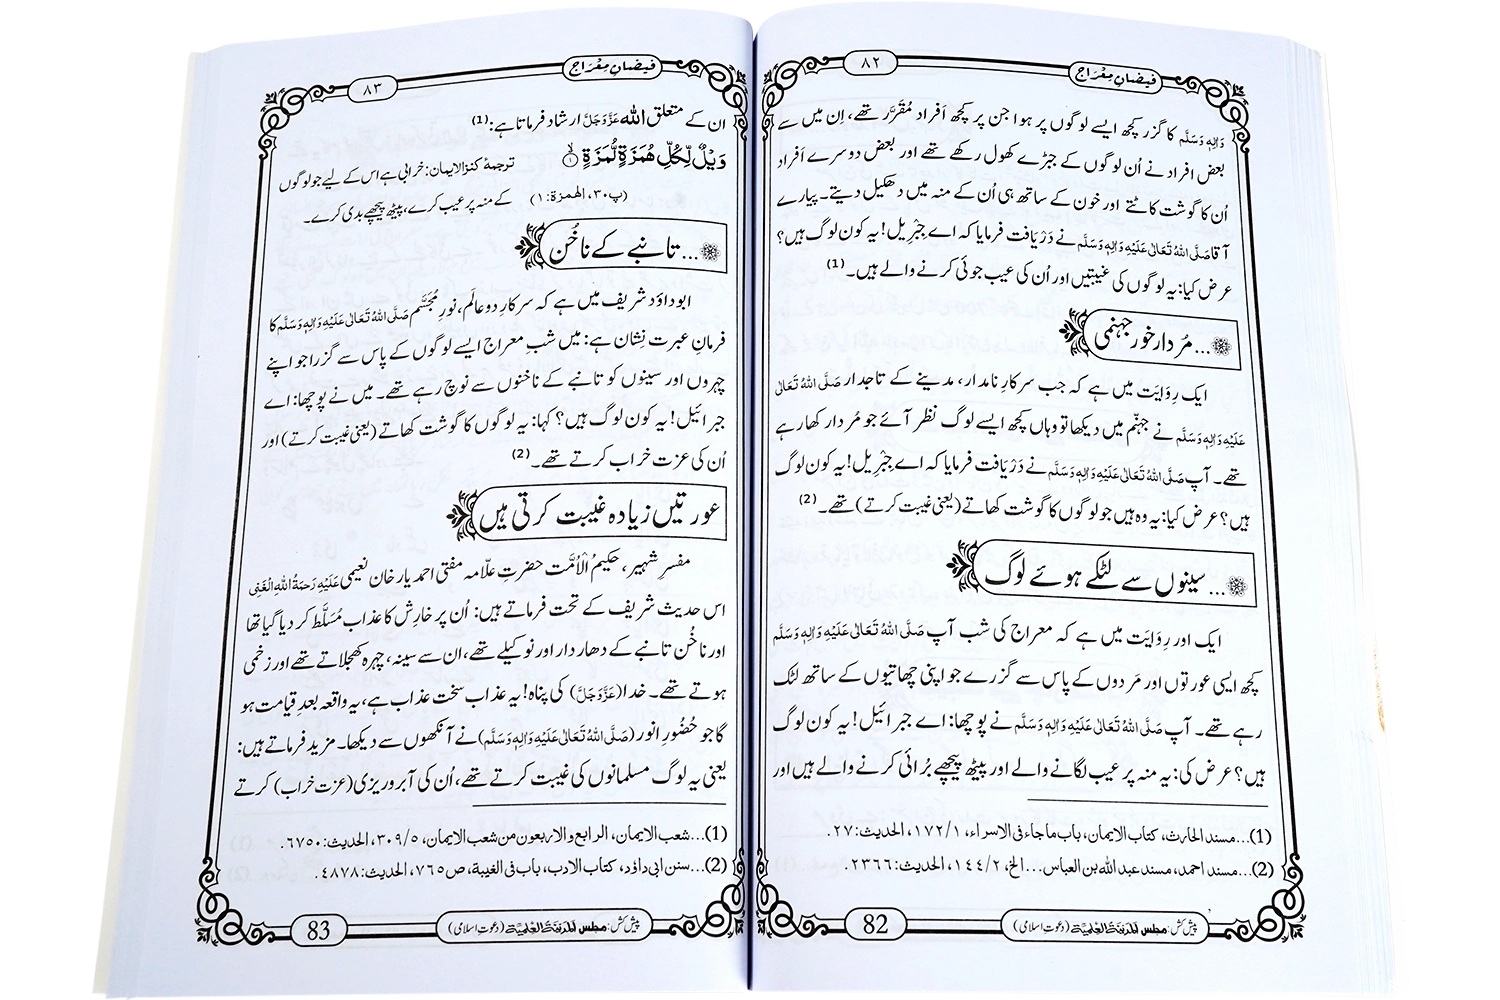 فیضانِ مِعْرَاج
۸۲
وَاٰلِهٖ وَسَلَّم کا گزر کچھ ایسے لوگوں پر ہوا جن پر کچھ اَفراد مُقَرَّر تھے، اِن میں سے
بعض افراد نے اُن لوگوں کے جبڑے کھول رکھے تھے اور بعض دوسرے اَفراد
اُن کا گوشت کاٹتے اور خون کے ساتھ ہی اُن کے منہ میں دھکیل دیتے۔ پیارے
آقا صَلَّى اللهُ تَعَالٰى عَلَيْهِ وَاٰلِهٖ وَسَلَّم نے دَرْیافت فرمایا کہ اے جبْرِیل! یہ کون لوگ ہیں؟
عرض کیا: یہ لوگوں کی غیبتیں اور اُن کی عیب جوئی کرنے والے ہیں۔ (1)
... مُردار خور جہنمی
ایک رِوایَت میں ہے کہ جب سرکارِ نامدار، مدینے کے تاجدار صَلَّى اللهُ تَعَالٰى
عَلَيْهِ وَاٰلِهٖ وَسَلَّم نے جہنّم میں دیکھا تو وہاں کچھ ایسے لوگ نظر آئے جو مُردار کھا رہے
تھے۔ آپ صَلَّى اللهُ تَعَالٰى عَلَيْهِ وَاٰلِهٖ وَسَلَّم نے دَرْیافت فرمایا کہ اے جبْرِیل! یہ کون لوگ
ہیں؟ عرض کیا: یہ وہ ہیں جو لوگوں کا گوشت کھاتے (یعنی غیبت کرتے) تھے۔ (2)
... سینوں سے لٹکے ہوئے لوگ
ایک اور رِوایَت میں ہے کہ معراج کی شب آپ صَلَّى اللهُ تَعَالٰى عَلَيْهِ وَاٰلِهٖ وَسَلَّم
کچھ ایسی عورتوں اور مَردوں کے پاس سے گزرے جو اپنی چھاتیوں کے ساتھ لٹک
رہے تھے۔ آپ صَلَّى اللهُ تَعَالٰى عَلَيْهِ وَاٰلِهٖ وَسَلَّم نے پوچھا: اے جبرائیل! یہ کون لوگ
ہیں؟ عرض کی: یہ منہ پر عیب لگانے والے اور پیٹھ پیچھے بُرائی کرنے والے ہیں اور
(1)... مسند الحارث، کتاب الایمان، باب ما جاء فی الاسراء، ۱/۱۷۲، الحدیث: ۲۷.
(2)... مسند احمد، مسند عبد الله بن العباس... الخ، ۲/۱۴۴، الحدیث: ۲۳۶۶.
پیش کش: مجلس اَلْمَدِیْنَۃُ الْعِلْمِیَّۃ (دعوتِ اسلامی)
82
فیضانِ مِعْرَاج
۸۳
ان کے متعلق اللّٰه عَزَّ وَجَلَّ ارشاد فرماتا ہے: (1)
وَيْلٌ لِّكُلِّ هُمَزَةٍ لُّمَزَةٍ ۙ﴿۱﴾ ترجمۂ کنز الایمان: خرابی ہے اس کے لیے جو لوگوں
(پ۳۰، الهمزة: ۱) کے منہ پر عیب کرے، پیٹھ پیچھے بدی کرے۔
... تانبے کے ناخُن
ابوداؤد شریف میں ہے کہ سرکارِ دو عالَم، نورِ مُجَسَّم صَلَّى اللهُ تَعَالٰى عَلَيْهِ وَاٰلِهٖ وَسَلَّم کا
فرمانِ عبرت نِشان ہے: میں شبِ معراج ایسے لوگوں کے پاس سے گزرا جو اپنے
چہروں اور سینوں کو تانبے کے ناخنوں سے نوچ رہے تھے۔ میں نے پوچھا: اے
جبرائیل! یہ کون لوگ ہیں؟ کہا: یہ لوگوں کا گوشت کھاتے (یعنی غیبت کرتے) اور
اُن کی عزت خراب کرتے تھے۔ (2)
عورتیں زیادہ غیبت کرتی ہیں
مفسرِ شہیر، حکیمُ الْاُمَّت حضرتِ علّامہ مفتی احمد یار خان نعیمی عَلَيْهِ رَحْمَةُ اللهِ الْغَنِى
اس حدیث شریف کے تحت فرماتے ہیں: اُن پر خارِش کا عذاب مُسَلَّط کر دیا گیا تھا
اور ناخُن تانبے کے دھار دار اور نوکیلے تھے، ان سے سینہ، چہرہ کھجلاتے تھے اور زخمی
ہوتے تھے۔ خدا (عَزَّ وَجَلَّ) کی پناہ! یہ عذاب سخت عذاب ہے، یہ واقعہ بعدِ قیامت ہو
گا جو حُضُورِ انور (صَلَّى اللهُ تَعَالٰى عَلَيْهِ وَاٰلِهٖ وَسَلَّم) نے آنکھوں سے دیکھا۔ مزید فرماتے ہیں:
یعنی یہ لوگ مسلمانوں کی غیبت کرتے تھے، اُن کی آبروریزی (عزت خراب) کرتے
(1)... شعب الایمان، الرابع والاربعون من شعب الایمان، ۵/۳۰۹، الحدیث: ۶۷۵۰.
(2)... سنن ابی داؤد، کتاب الادب، باب فی الغیبة، ص۷۶۵، الحدیث: ۴۸۷۸.
پیش کش: مجلس اَلْمَدِیْنَۃُ الْعِلْمِیَّۃ (دعوتِ اسلامی)
83